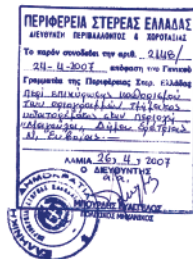 ΠΕΡΙΦΕΡΕΙΑ ΣΤΕΡΕΑΣ ΕΛΛΑΔΑΣ
ΔΙΕΥΘΥΝΣΗ ΠΕΡΙΒΑΛΛΟΝΤΟΣ & ΧΩΡΟΤΑΞΙΑΣ
Το παρόν συνοδεύει την αριθ. 2448/
24-4-2007 απόφαση του Γενικού
Γραμματέα της Περιφέρειας Στερ. Ελλάδας
περί επικύρωσης καθορισμού
των οριογραμμών τμήματος
υδατορέματος στην περιοχή
Δήμου Ερέτριας
Ν. Εύβοιας
ΛΑΜΙΑ 26.4.2007
Ο ΔΙΕΥΘΥΝΤΗΣ
ΠΟΛΙΤΙΚΟΣ ΜΗΧΑΝΙΚΟΣ